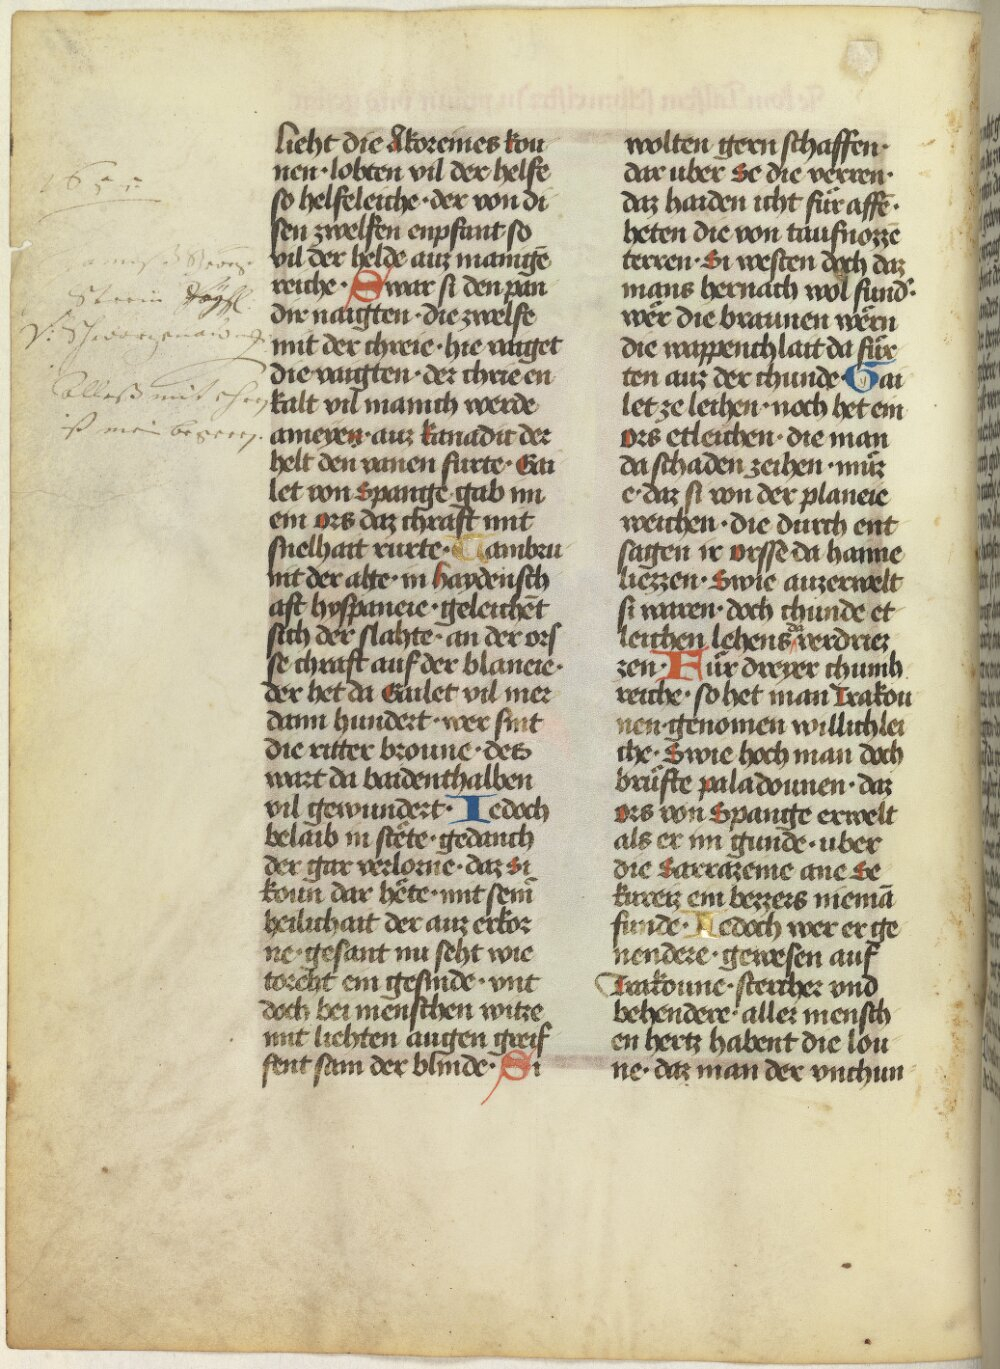 lieht die Akoreines kou
nen · lobten vil der helfe
so helfeleiche · der von di
sen zwelfen enpfant so
vil der helde auz manigē
reiche · Swar si den pan
dir naigten · die zwelfe
mit der chreie · hie vaiget
die vaigten · der chrie en
kalt vil manich werde
ameyen · auz kanadit der
helt den vanen furte · Gai
let von Spange gab im
ein ors daz chraft mit
snelhait rurte · Tambru
nit der alte · in haydensch
aft hyspaneie · geleichēt
sich der slahte · an der ors
se chraft auf der blaneie ·
der het da Gailet vil mer
dann hundert · wer sint
die ritter broune · dets
wart da baidenthalben
vil gewundert · Iedoch
belaib in stete · gedanch
der gar verlorne · daz si
koun dar hete · mit seinē
heilichait der auz erkor
ne · gesant nu seht wie
toreht ein gesinde · vnt
doch bei menschen witze
mit liehten augen greif
fent sam der blinde · Si
wolten gern schaffen ·
dar uber Se die verren ·
daz haiden icht für affē ·
heten die von taufnozzē
terren · Si westen doch daz
mans hernach wol fund ·
wer die braunen wern
die wappenchlait da für
ten auz der chunde · Gai
let ze leihen · noch het ein
ors etleichen · die man
da schaden zeihen · müz
e · daz si von der planeie
weichen · die durch ent
sagen ir orsse da hanne
liezzen · Swie auzerwelt
si waren · doch chunde et
leichen lehens da verdriez
zen · Für dreyer chunich
reiche · so het man Trakou
nen · genomen willichlei
che · Swie hoch man doch
brüfte paladounen · daz
ors von Spange erwelt
als er im gunde · uber
die Sarrazeine ane Se
kureiz ein bezzers niemā
funde · Iedoch wer er ge
nendere · gewesen auf
Trakoune · stercher vnd
behendere · aller mensch
en hertz habent die lou
ne · daz man der vnchun